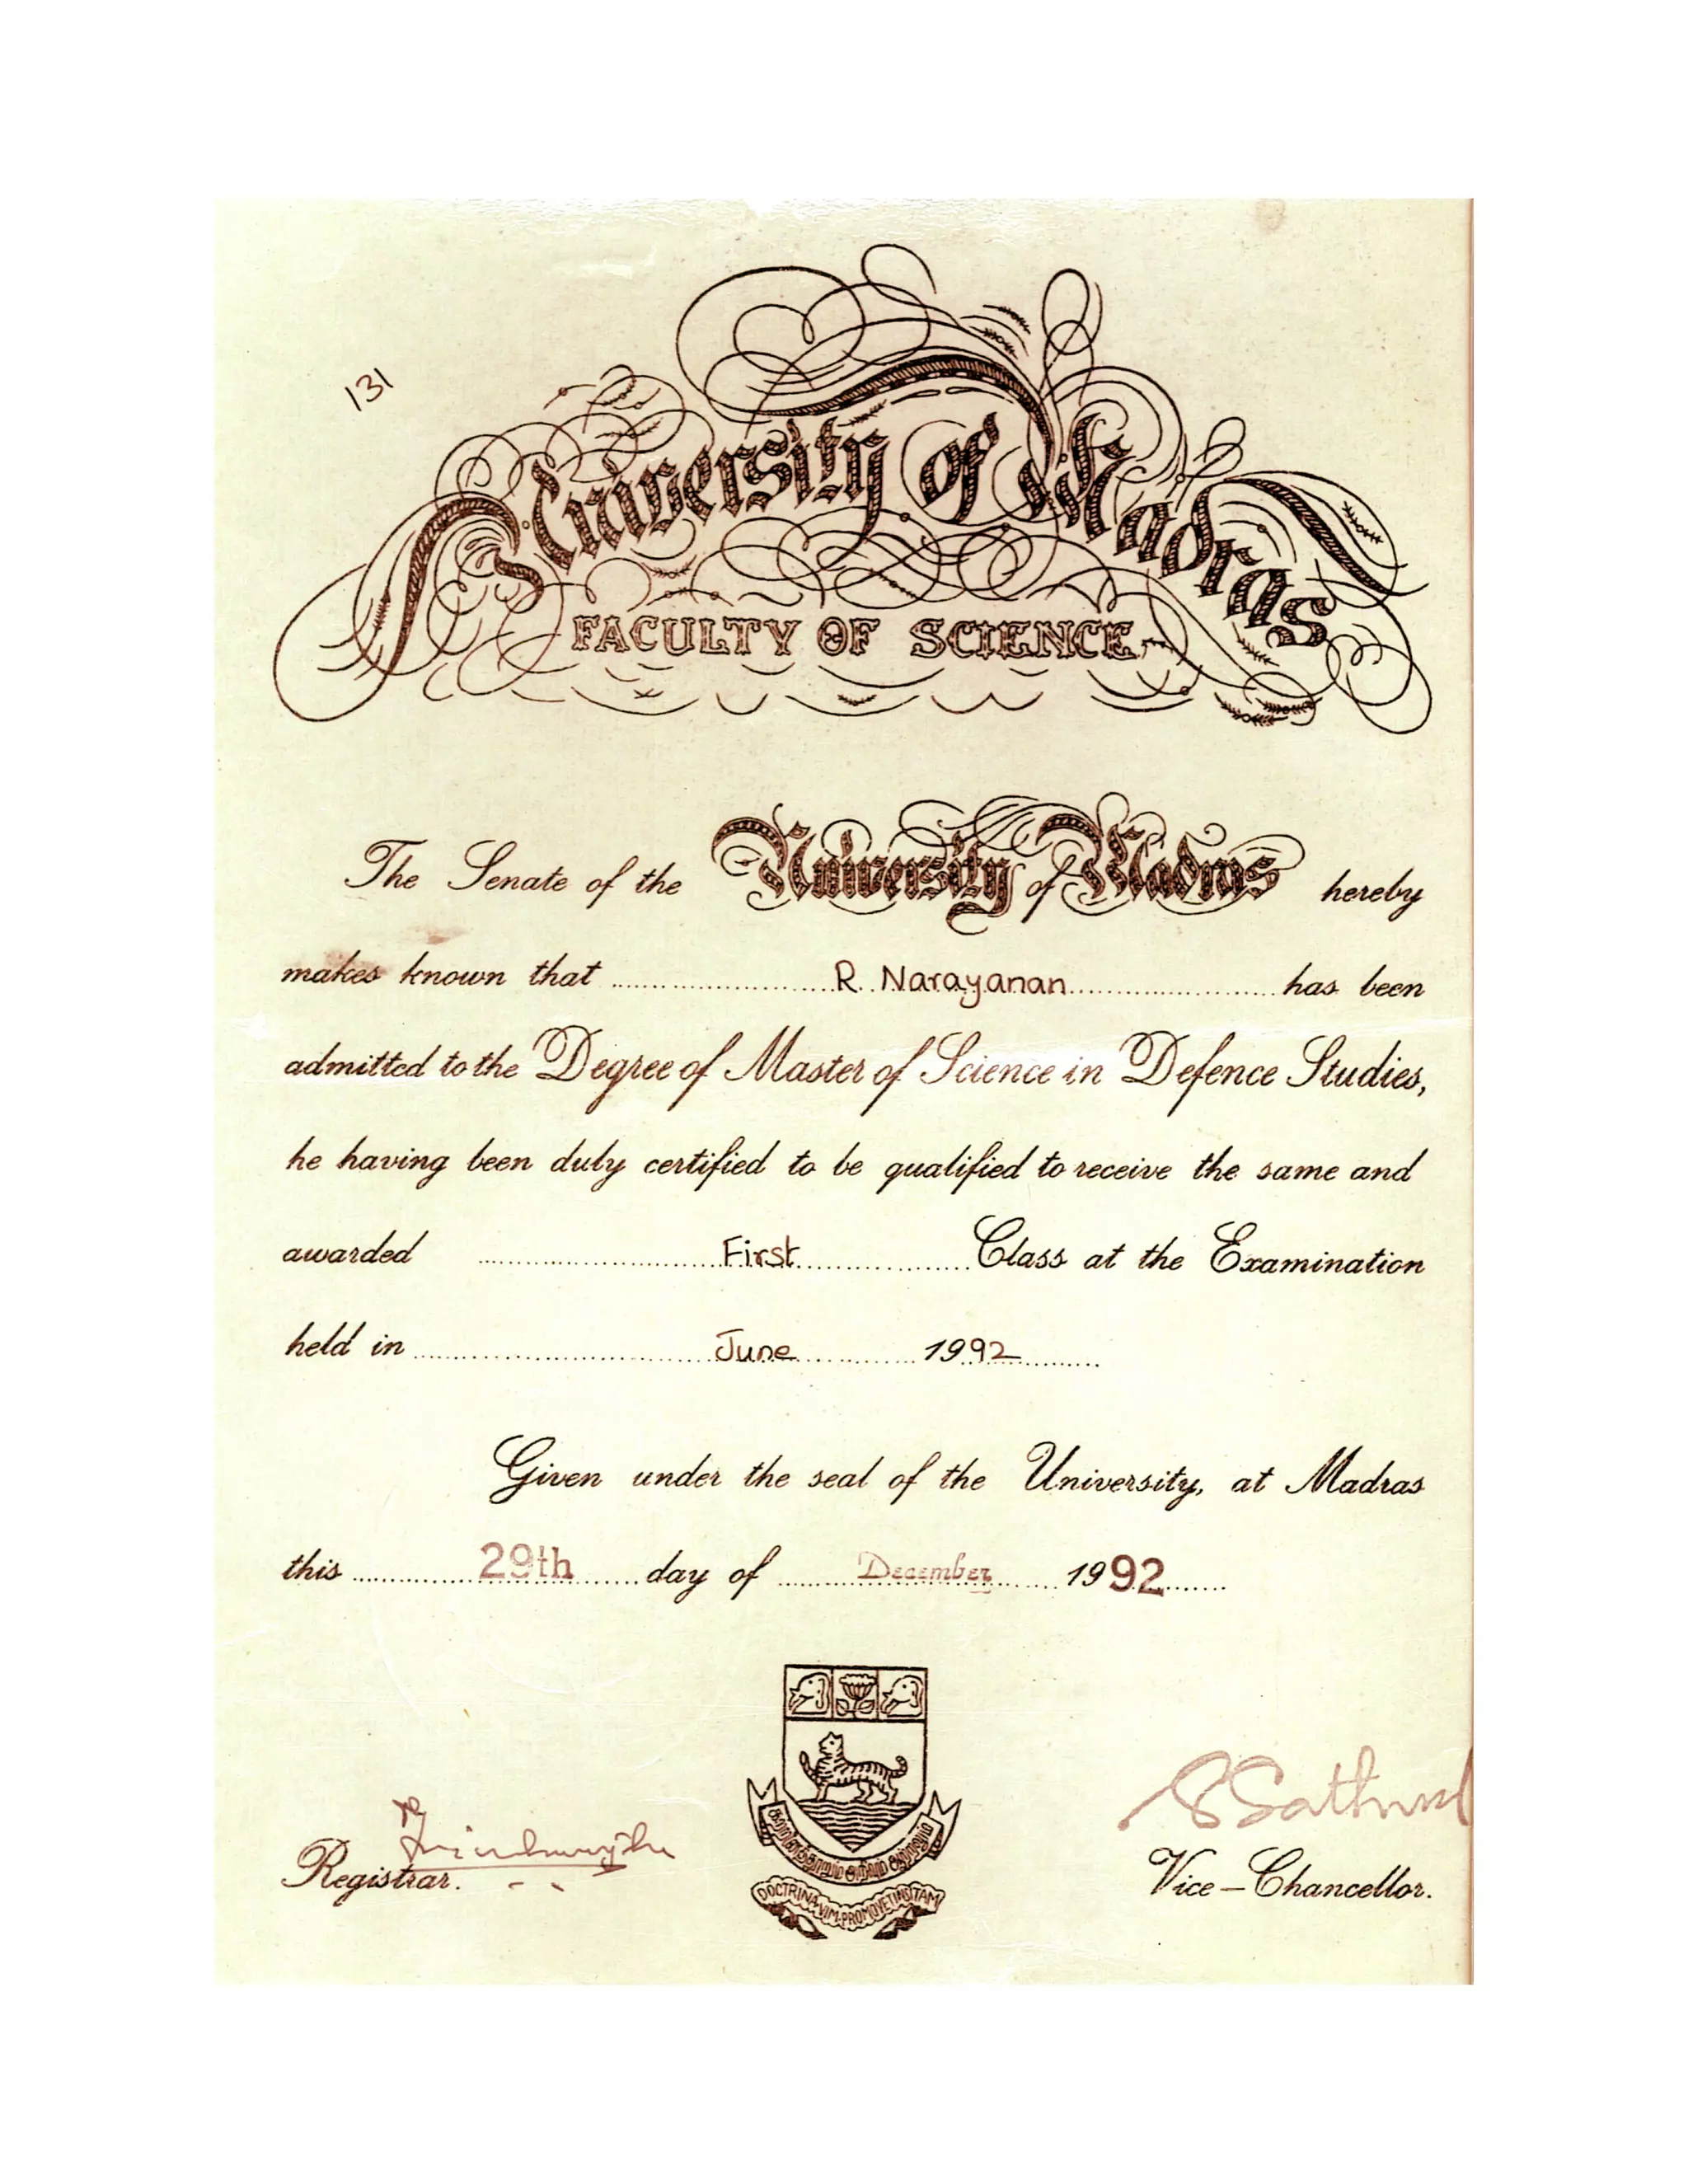 131
University of Madras
FACULTY OF SCIENCE
The Senate of the University of Madras hereby
makes known that R. Narayanan has been
admitted to the Degree of Master of Science in Defence Studies,
he having been duly certified to be qualified to receive the same and
awarded First Class at the Examination
held in June 1992
Given under the seal of the University, at Madras
this 29th day of December 1992
Registrar.
Vice-Chancellor.
DOCTRINA VIM PROMOVET INSITAM